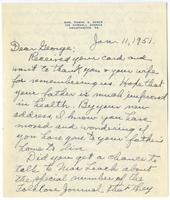 Jan. 11, 1951.
Dear George;
Received your card and
want to thank you & your wife
for remembering us. Hope that
your father is much improved
in health. By your new
address, I know you have
moved and wondering if
you have gone to your father's
home to live.
Did you get a chance to
talk to Miss Leach about
the special number of the
Folklore Journal, that they